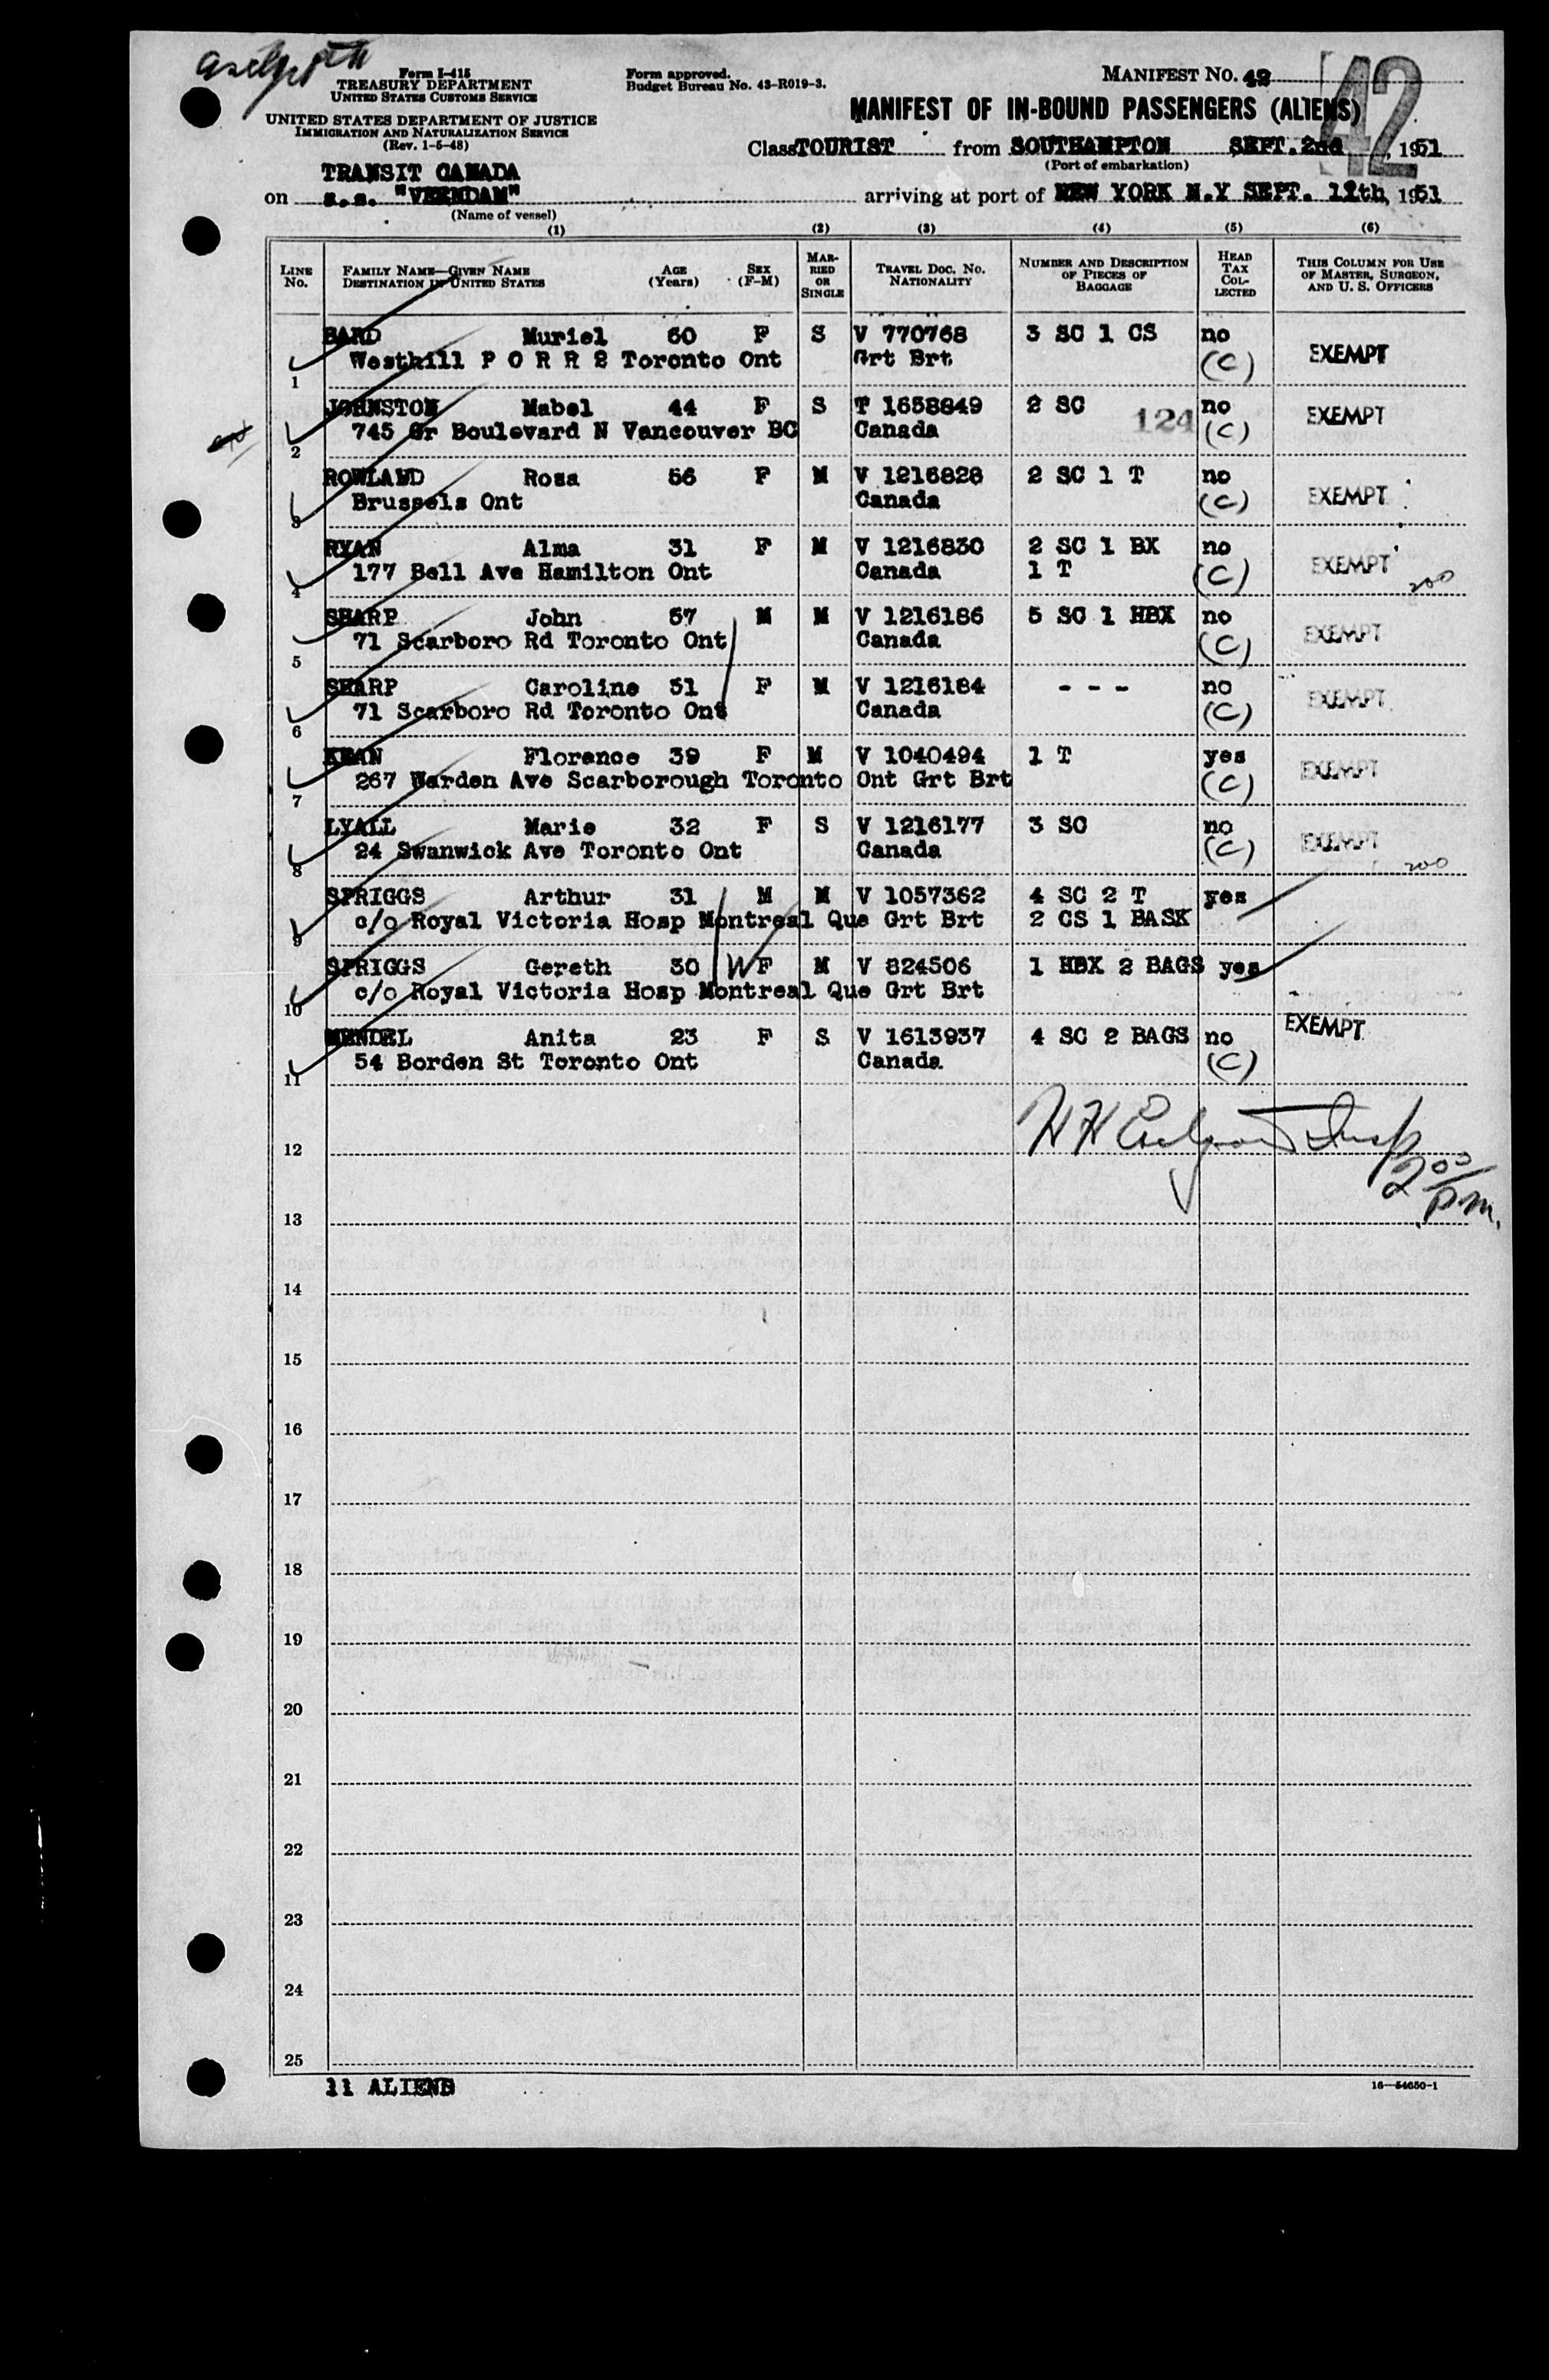 Form I-415
TREASURY DEPARTMENT
UNITED STATES CUSTOMS SERVICE
UNITED STATES DEPARTMENT OF JUSTICE
IMMIGRATION AND NATURALIZATION SERVICE
(Rev. 1-5-48)
Form approved.
Budget Bureau No. 43-R019-3.
MANIFEST NO. 42
42
MANIFEST OF IN-BOUND PASSENGERS (ALIENS)
Class TOURIST from SOUTHAMPTON SEPT. 2nd, 1951
(Port of embarkation)
TRANSIT CANADA
on s.s. "VEENDAM" arriving at port of NEW YORK N.Y SEPT. 12th, 1951
(Name of vessel)
(1) (2) (3) (4) (5) (6)
LINE NO. FAMILY NAME—GIVEN NAME DESTINATION IN UNITED STATES AGE (Years) SEX (F-M) MARRIED OR SINGLE TRAVEL DOC. NO. NATIONALITY NUMBER AND DESCRIPTION OF PIECES OF BAGGAGE HEAD TAX COLLECTED THIS COLUMN FOR USE OF MASTER, SURGEON, AND U. S. OFFICERS
BARD Muriel 60 F S V 770768 3 SC 1 CS no EXEMPT
1 Westhill P O R R 2 Toronto Ont Grt Brt (C)
JOHNSTON Mabel 44 F S T 1658849 2 SC 124 no EXEMPT
2 745 Gr Boulevard N Vancouver BC Canada (C)
ROWLAND Rosa 56 F M V 1216828 2 SC 1 T no EXEMPT
3 Brussels Ont Canada (C)
RYAN Alma 31 F M V 1216830 2 SC 1 BX no EXEMPT
4 177 Bell Ave Hamilton Ont Canada 1 T (C) 200
SHARP John 57 M M V 1216186 5 SC 1 HBX no EXEMPT
5 71 Scarboro Rd Toronto Ont Canada (C)
SHARP Caroline 51 F M V 1216184 - - - no EXEMPT
6 71 Scarboro Rd Toronto Ont Canada (C)
KEAN Florence 39 F M V 1040494 1 T yes EXEMPT
7 267 Warden Ave Scarborough Toronto Ont Grt Brt (C)
LYALL Marie 32 F S V 1216177 3 SC no EXEMPT
8 24 Swanwick Ave Toronto Ont Canada (C) 200
SPRIGGS Arthur 31 M M V 1057362 4 SC 2 T yes
9 c/o Royal Victoria Hosp Montreal Que Grt Brt 2 CS 1 BASK
SPRIGGS Gereth 30 W F M V 824506 1 HBX 2 BAGS yes
10 c/o Royal Victoria Hosp Montreal Que Grt Brt
MENDEL Anita 23 F S V 1613937 4 SC 2 BAGS no EXEMPT
11 54 Borden St Toronto Ont Canada (C)
12
2 00 pm.
13
14
15
16
17
18
19
20
21
22
23
24
25
11 ALIENS
16—54650-1